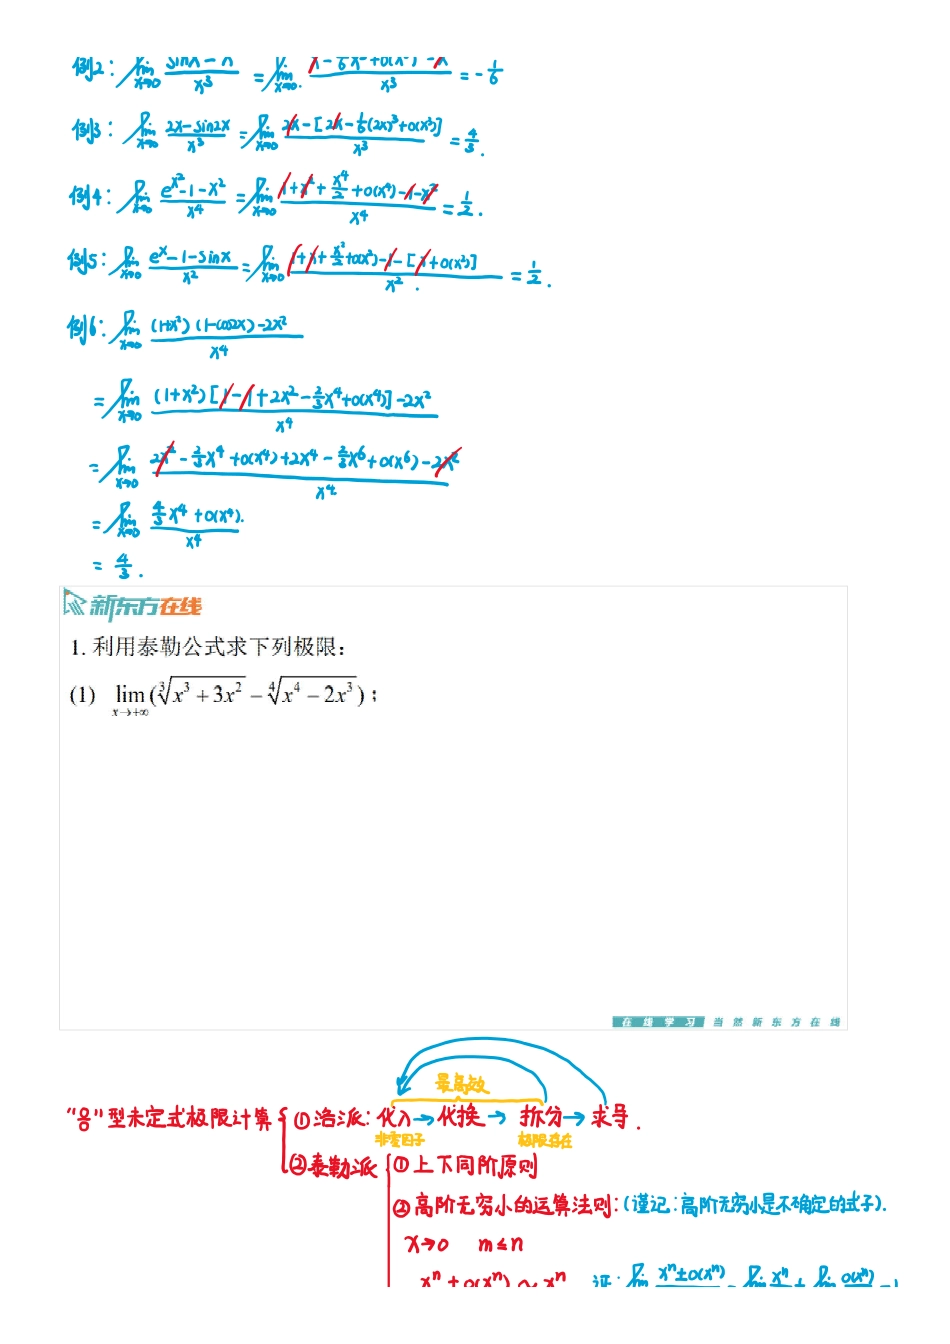 例2: lim x→0 (sinx-x)/x³ = lim x→0 (x-1/6x³+o(x³)-x)/x³ = -1/6
例3: lim x→0 (2x-sin2x)/x³ = lim x→0 (2x-[2x-1/6(2x)³+o(x³)])/x³ = 4/3.
例4: lim x→0 (e^x²-1-x²)/x⁴ = lim x→0 (1+x²+x⁴/2+o(x⁴)-1-x²)/x⁴ = 1/2.
例5: lim x→0 (e^x-1-sinx)/x² = lim x→0 (1+x+x²/2+o(x²)-1-[x+o(x²)])/x² = 1/2.
例6: lim x→0 ((1+x²)(1-cos2x)-2x²)/x⁴
= lim x→0 ((1+x²)[1-1+2x²-2/3x⁴+o(x⁴)]-2x²)/x⁴
= lim x→0 (2x²-2/3x⁴+o(x⁴)+2x⁴-2/3x⁶+o(x⁶)-2x²)/x⁴
= lim x→0 (4/3x⁴+o(x⁴).)/x⁴
= 4/3.
新东方在线
1. 利用泰勒公式求下列极限:
(1) lim x→+∞ (∛(x³+3x²) - ∜(x⁴-2x³));
在线学习 当然新东方在线
最高效
"0/0"型未定式极限计算 ①洛派: 化入→代换→拆分→求导.
非零因子 极限存在
②泰勒派 ①上下同阶原则
②高阶无穷小的运算法则:(谨记:高阶无穷小是不确定的式子).
x→0 m≤n
xⁿ+o(xⁿ)~xⁿ 证: lim (xⁿ±o(xⁿ))